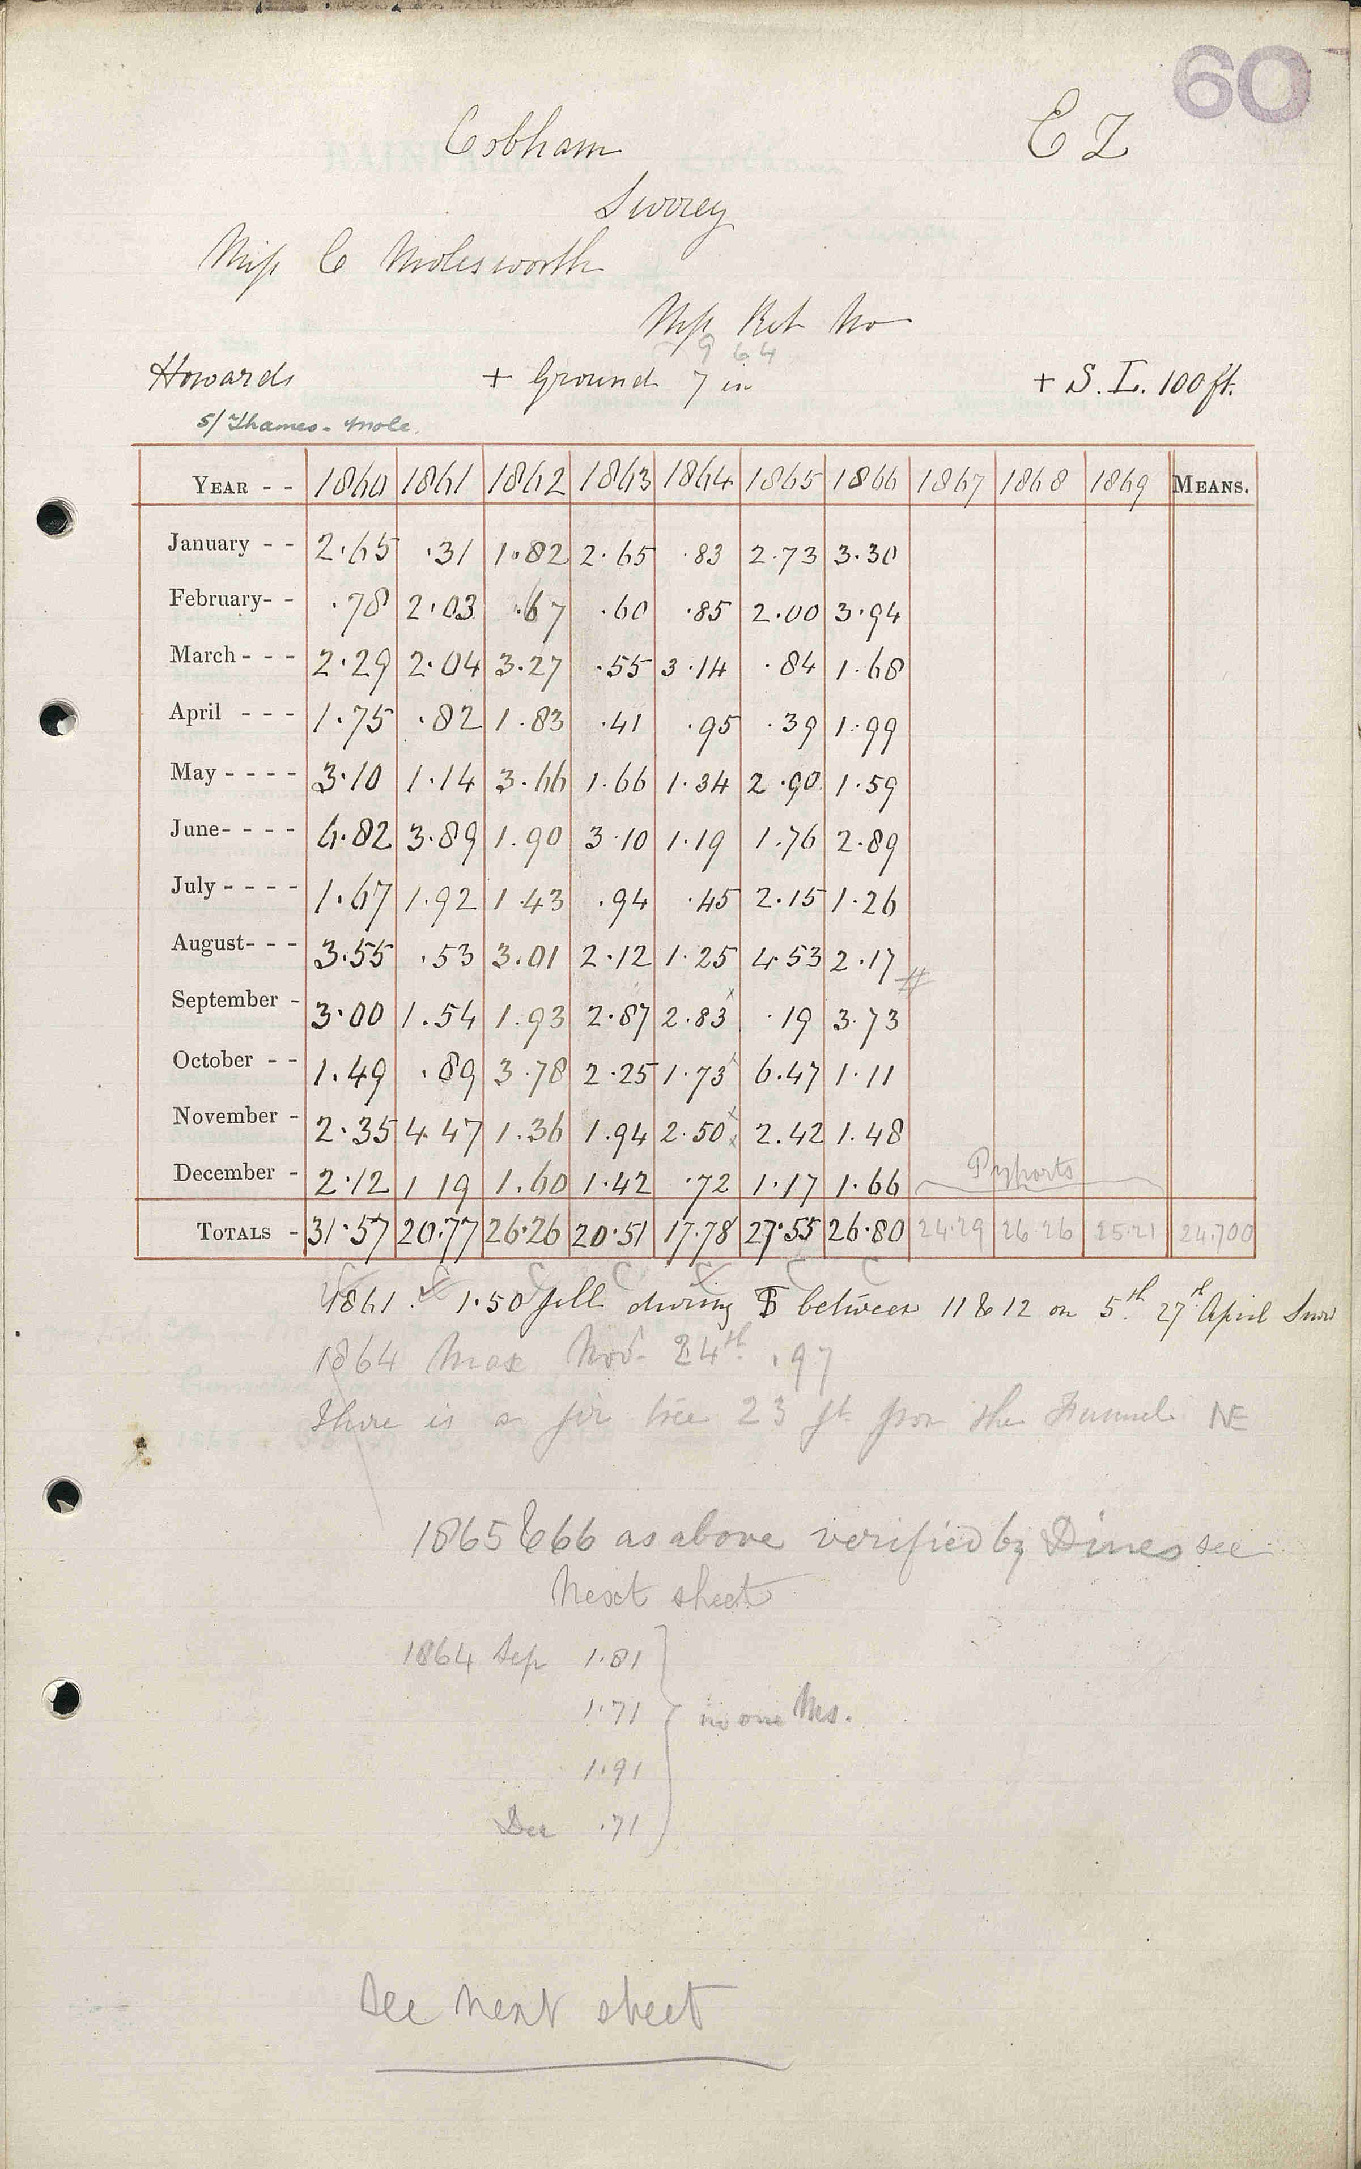 60
Cobham E Z
Surrey
Miss C Molesworth
Mss Ret No
964
Howards + Ground 7 in + S. L. 100 ft.
S/ Thames - Mole.
YEAR - - 1860 1861 1862 1863 1864 1865 1866 1867 1868 1869 MEANS.
January - - 2.65 .31 1.82 2.65 .83 2.73 3.30
February- - .78 2.03 .67 .60 .85 2.00 3.94
March - - - 2.29 2.04 3.27 .55 3.14 .84 1.68
April - - - 1.75 .82 1.83 .41 .95 .39 1.99
May - - - - 3.10 1.14 3.66 1.66 1.34 2.90 1.59
June- - - - 6.82 3.89 1.90 3.10 1.19 1.76 2.89
July - - - - 1.67 1.92 1.43 .94 .45 2.15 1.26
August- - - 3.55 .53 3.01 2.12 1.25 4.53 2.17
September - 3.00 1.54 1.93 2.87 2.83 .19 3.73
October - - 1.49 .89 3.78 2.25 1.73 6.47 1.11
November - 2.35 4.47 1.36 1.94 2.50 2.42 1.48
December - 2.12 1 19 1.60 1.42 .72 1.17 1.66 Pyports
TOTALS - 31.57 20.77 26.26 20.51 17.78 27.55 26.80 24.29 26.26 25.21 24.700
C C C C C C C
1861. 1.50 fell during between 11 & 12 on 5th. 27th April Snow
1864 Max Nov. 24th .97
There is a fir tree 23 ft from the Funnel NE
1865 & 66 as above verified by Dines see
Next sheet
1864 Sep 1.81
1.71 in one Ms.
1.91
Dec .71
See next sheet